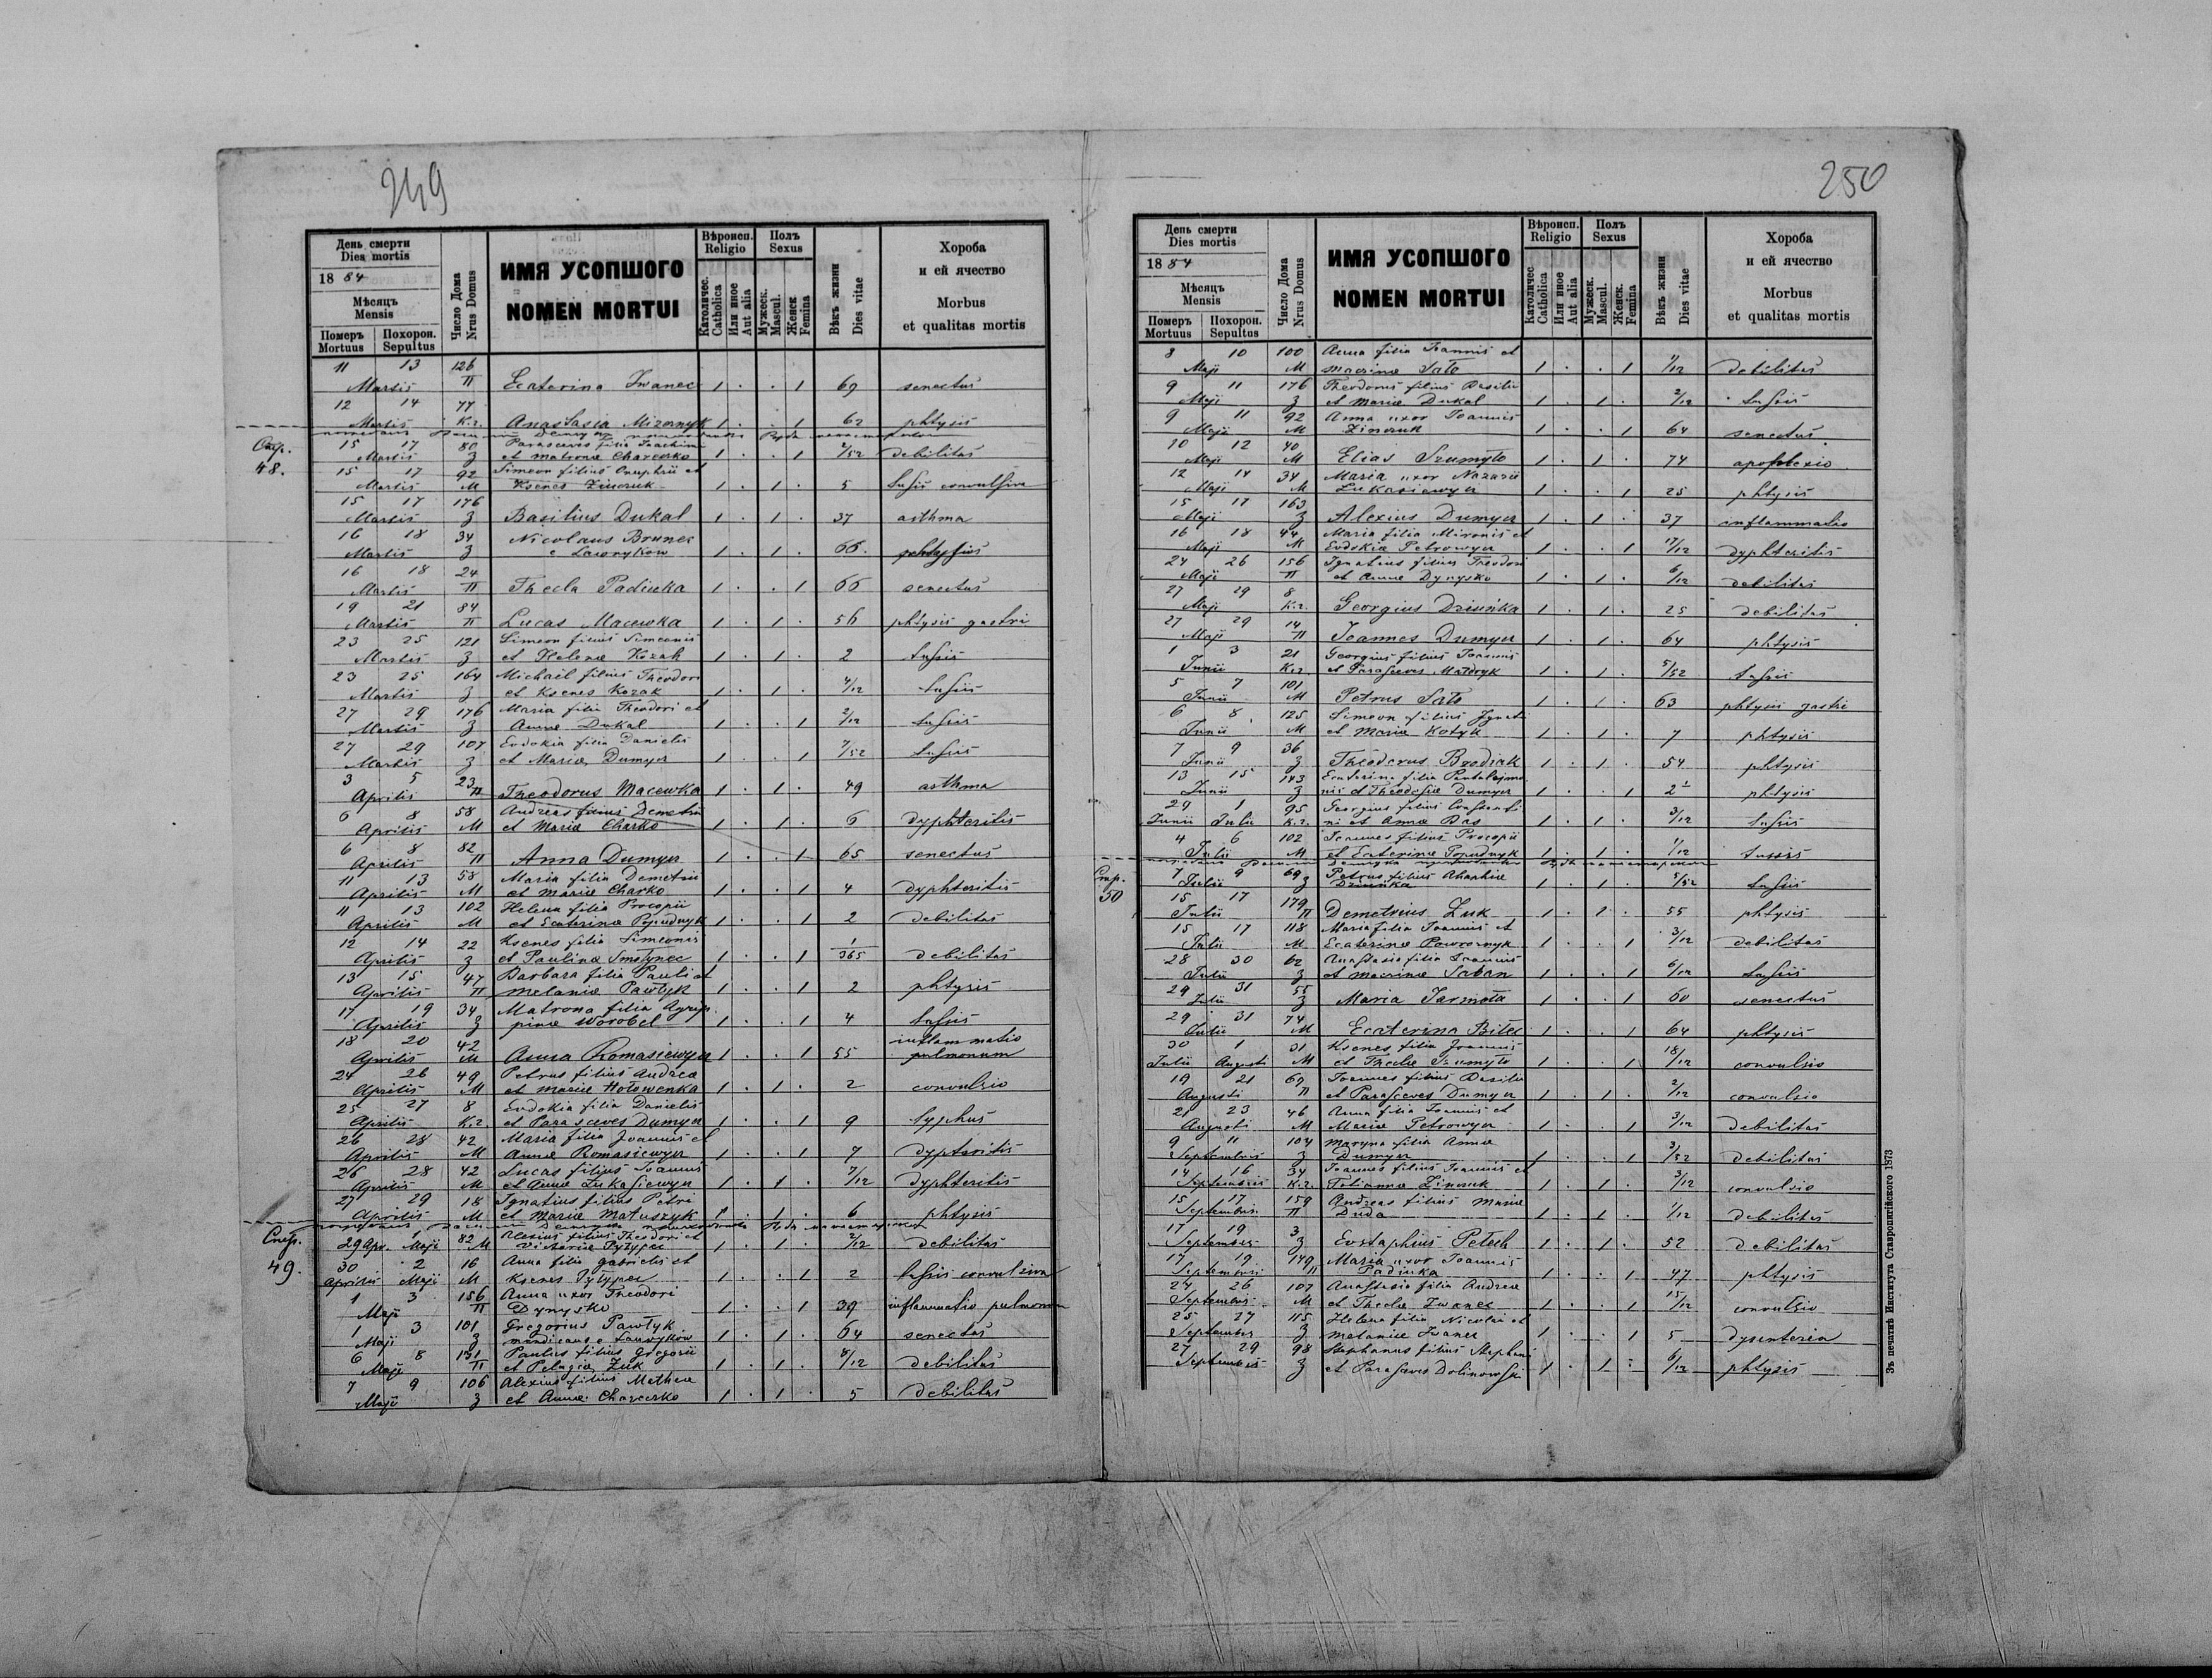 249
День смерти
Dies mortis
1884
Мѣсяцъ
Mensis
Померъ
Mortuus
Похорон.
Sepultus
Число Дома
Nrus Domus
ИМЯ УСОПШОГО
NOMEN MORTUI
Вѣроисп.
Religio
Католичес.
Catholica
Или иное
Aut alia
Полъ
Sexus
Мужеск.
Mascul.
Женск
Femina
Вѣкъ жизни
Dies vitae
Хороба
и ей ячество
Morbus
et qualitas mortis
11 13 126
Martis П Ecaterina Iwanec 1 . . 1 69 senectus
12 14 77
Martis К.г. Anastasia Mizernyk 1 . . 1 62 phtysis
Стр.
48.
15 17 80 Parasceves filia Joachimi
Martis З et Matronæ Charczko 1 . . 1 2/52 debilitas
15 17 92 Simeon filius Onuphrii et
Martis M Ksenes Zinczuk 1 . 1 . 5 tussis convulsiva
15 17 176
Martis З Basilius Dukal 1 . 1 . 37 asthma
16 18 34 Nicolaus Brunec
Martis З e Lawrykow 1 . 1 . 66. phtysis
16 18 24
Martis П Thecla Padiuka 1 . . 1 66 senectus
19 21 84
Martis П Lucas Macewka 1 . 1 . 56 phtysis gastri
23 25 121 Simeon filius Simeonis
Martis З et Helenæ Kozak 1 . 1 . 2 tussis
23 25 164 Michaël filius Theodori
Martis З et Ksenes Kozak 1 . 1 . 4/12 tussis
27 29 176 Maria filia Theodori et
Martis З Annæ Dukal 1 . . 1 2/12 tussis
27 29 107 Eudokia filia Danielis
Martis З et Mariæ Dumycz 1 . . 1 7/52 tussis
3 5 23
Aprilis П Theodorus Macewka 1 . 1 . 49 asthma
6 8 58 Andreas filius Demetrii
Aprilis M et Mariæ Charko 1 . 1 . 6 dyphteritis
6 8 82
Aprilis П Anna Dumycz 1 . . 1 65 senectus
11 13 58 Maria filia Demetrii
Aprilis M et Mariæ Charko 1 . . 1 4 dyphteritis
11 13 102 Helena filia Procopii
Aprilis M et Ecaterinæ Popudnyk 1 . . 1 2 debilitas
12 14 22 Ksenes filia Simeonis
Aprilis З et Paulinæ Smolynec 1 . . 1 1/365 debilitas
13 15 47 Barbara filia Pauli et
Aprilis П Melaniæ Pawłyk 1 . . 1 2 phtysis
17 19 34 Matrona filia Agrip-
Aprilis З pinæ Worobel 1 . . 1 4 tussis
18 20 42 inflammatio
Aprilis M Anna Romasiewycz 1 . . 1 55 pulmonum
24 26 49 Petrus filius Andreæ
Aprilis M et Mariæ Hołowenka 1 . 1 . 2 convulsio
25 27 8 Eudokia filia Danielis
Aprilis К.г. et Parasceves Dumycz 1 . . 1 9 typhus
26 28 42 Maria filia Joannis et
Aprilis M Annæ Romasiewycz 1 . . 1 7 dypteritis
26 28 42 Lucas filius Joannis
Aprilis M et Annæ Lukasiewycz 1 . 1 . 7/12 dyphteritis
27 29 18 Ignatius filius Petri
Aprilis M et Mariæ Matuszyk 1 . 1 . 6 phtysis
Стр.
49.
29 Apr. 1 Maji 82 Alexius filius Theodori et
M Victoriæ Pytypec 1 . 1 . 2/12 debilitas
30 2 16 Anna filia Gabrielis et
Aprilis Maji M Ksenes Pytypec 1 . . 1 2 tussis convulsiva
1 3 156 Anna uxor Theodori
Maji П Dynysko 1 . . 1 39 inflammatio pulmonum
1 3 101 Gregorius Pawłyk
Maji З mendicans e Ławrykow 1 . 1 . 64 senectus
6 8 131 Paulus filius Gregorii
Maji П et Pelagiæ Zuk 1 . 1 . 8/12 debilitas
7 9 106 Alexius filius Mathæ
Maji З et Annæ Charczko 1 . 1 . 5 debilitas
250
День смерти
Dies mortis
1884
Мѣсяцъ
Mensis
Померъ
Mortuus
Похорон.
Sepultus
Число Дома
Nrus Domus
ИМЯ УСОПШОГО
NOMEN MORTUI
Вѣроисп.
Religio
Католичес
Catholica
Или иное
Aut alia
Полъ
Sexus
Мужеск.
Mascul.
Женск.
Femina
Вѣкъ жизни
Dies vitae
Хороба
и ей ячество
Morbus
et qualitas mortis
8 10 100 Anna filia Joannis et
Maji M Macrinæ Sało 1 . . 1 1/12 debilitas
9 11 176 Theodorus filius Basilii
Maji З et Mariæ Dukal 1 . 1 . 2/12 tussis
9 11 92 Anna uxor Joannis
Maji M Zinczuk 1 . . 1 64 senectus
10 12 40
Maji M Elias Szumyło 1 . 1 . 74 apoplexio
12 14 34 Maria uxor Nazarii
Maji M Lukasiewycz 1 . . 1 25 phtysis
15 17 163
Maji З Alexius Dumycz 1 . 1 . 37 inflammatio
16 18 44 Maria filia Mironis et
Maji M Eudokia Petrowycz 1 . . 1 17/12 dyphteritis
24 26 156 Ignatius filius Theodori
Maji П et Annæ Dynysko 1 . 1 . 6/12 debilitas
27 29 8
Maji К.г. Georgius Dziuńka 1 . 1 . 25 debilitas
27 29 14
Maji П Joannes Dumycz 1 . 1 . 64 phtysis
1 3 21 Georgius filius Joannis
Junii К.г et Parasceves Małdryk 1 . 1 . 5/52 tussis
5 7 101
Junii M Petrus Sało 1 . 1 . 63 phtysis gastri
6 8 125 Simeon filius Ignati
Junii M et Mariæ Kotyk 1 . 1 . 7 phtysis
7 9 36
Junii З Theodorus Brodiak 1 . 1 . 54 phtysis
13 15 143 Ecaterina filia Pantalejmo
Junii З nis et Theodosiæ Dumycz 1 . . 1 2 phtysis
29 1 95 Georgius filius Constanti
Junii Julii К.г. ni et Annæ Bas 1 . 1 . 3/12 tussis
4 6 102 Joannes filius Procopii
Julii M et Ecaterinæ Popudnyk 1 . 1 . 1/12 tussis
Стр.
50
7 9 69 Petrus filius Ahaphiæ
Julii З Dziuńka 1 . 1 . 5/52 tussis
15 17 179
Julii П Demetrius Zuk 1 . 1 . 55 phtysis
15 17 118 Maria filia Joannis et
Julii M Ecaterinæ Poworoznyk 1 . . 1 3/12 debilitas
28 30 62 Anastasia filia Joannis
Julii З et Macrinæ Saban 1 . . 1 6/12 tussis
29 31 55
Julii З Maria Jarmoła 1 . . 1 60 senectus
29 31 74
Julii M Ecaterina Bilec 1 . . 1 64 phtysis
30 1 31 Ksenes filia Joannis
Julii Augusti M et Theclæ Szumyło 1 . . 1 18/12 convulsio
19 21 69 Joannes filius Basilii
Augusti П et Parasceves Dumycz 1 . 1 . 2/12 convulsio
21 23 46 Anna filia Joannis et
Augusti M Mariæ Petrowycz 1 . . 1 3/12 debilitas
9 11 104 Maryna filia Annæ
Septembris З Dumycz 1 . . 1 3/52 debilitas
14 16 34 Joannes filius Joannis et
Septembris К.г. Tatiannæ Zinczuk 1 . 1 . 3/12 convulsio
15 17 159 Andreas filius Mariæ
Septembris П Duda 1 . 1 . 1/12 debilitas
17 19 3
Septembris З Eustaphius Petech 1 . 1 . 52 debilitas
17 19 149 Maria uxor Joannis
Septembris П Padiuka 1 . . 1 47 phtysis
24 26 107 Anastasia filia Andreæ
Septembris M et Theclæ Iwanec 1 . . 1 15/12 convulsio
25 27 115 Helena filia Nicolai et
Septembris З Melaniæ Iwanec 1 . . 1 5 dysenteria
27 29 98 Stephanus filius Stephani
Septembris З et Parasceves Dolinowski 1 . 1 . 6/12 phtysis
Зъ печатнѣ Института Ставропигійского 1873